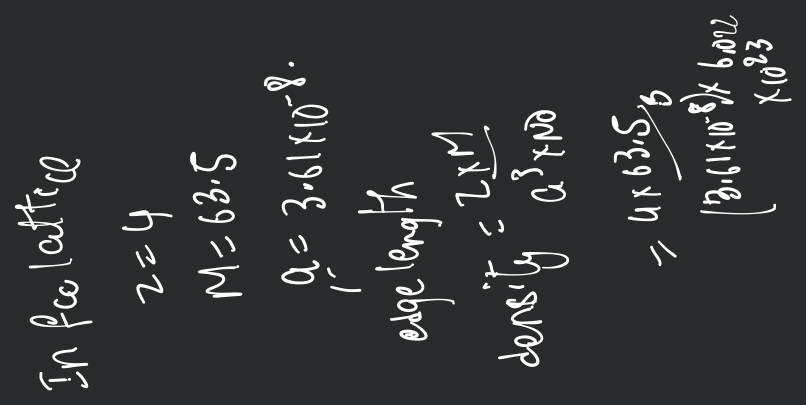 In fcc lattice
z = 4
M = 63.5
a = 3.61×10⁻⁸.
edge length
density = z×M / a³×N0
= 4×63.5 / (3.61×10⁻⁸)³ × 6.022 ×10²³